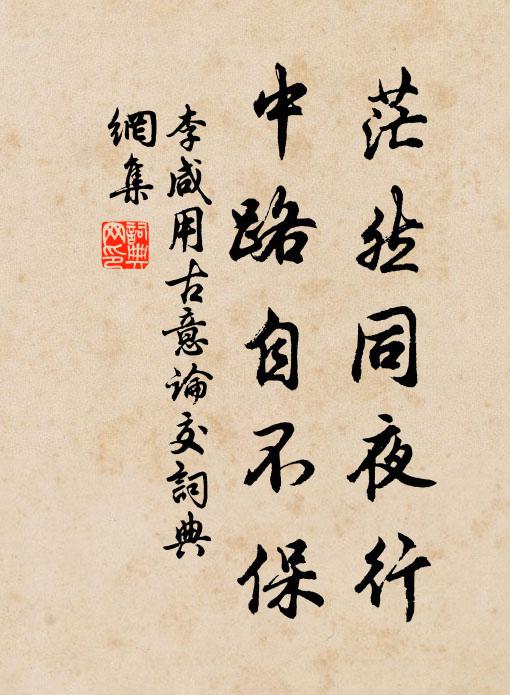 茫然同夜行
中路自不保
李咸用古意論交詞典
網集
詞典
网印